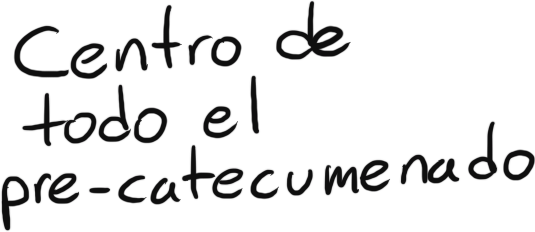 Centro de
todo el
pre-catecumenado